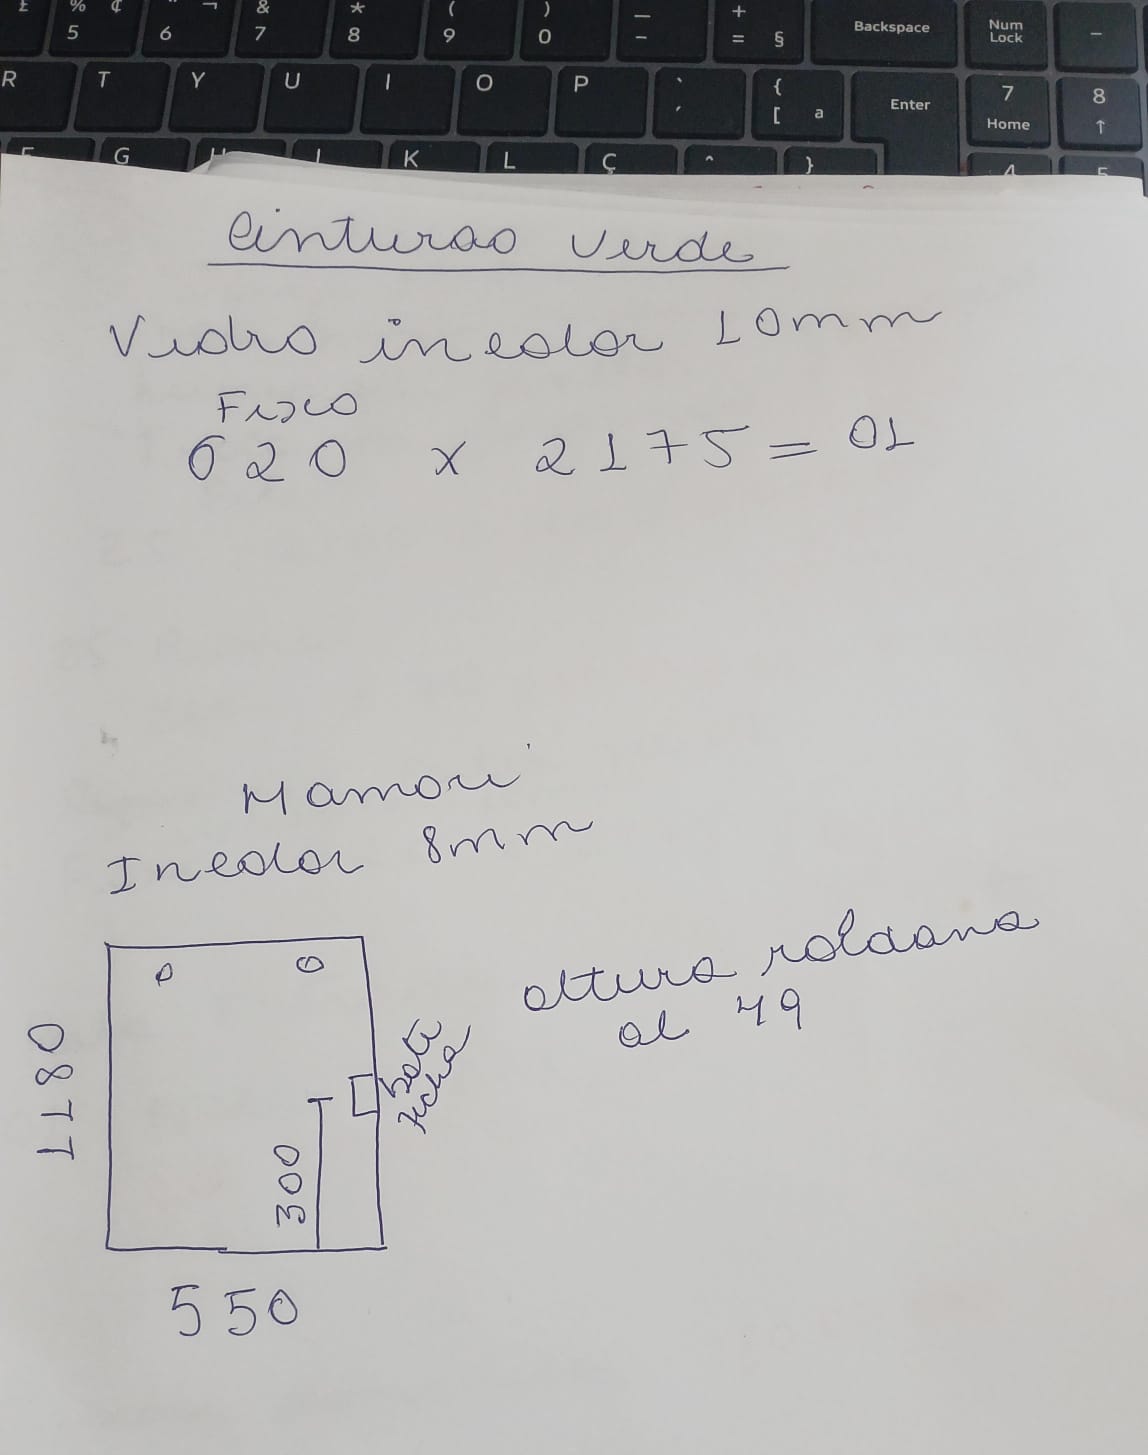 £ % 5 ¢ 6 ¨ ¬ & 7 * 8 ( 9 ) 0 — - + = § Backspace Num Lock -
R T Y U I O P ` ´ { [ ª Enter 7 Home 8 ↑
F G H J K L Ç ^ } 4 5
Cinturao Verde
Vidro incolor 10mm
Fixo
620 x 2175 = 01
Mamori
Incolor 8mm
altura roldana
al 49
bate
ficha
1180
300
550